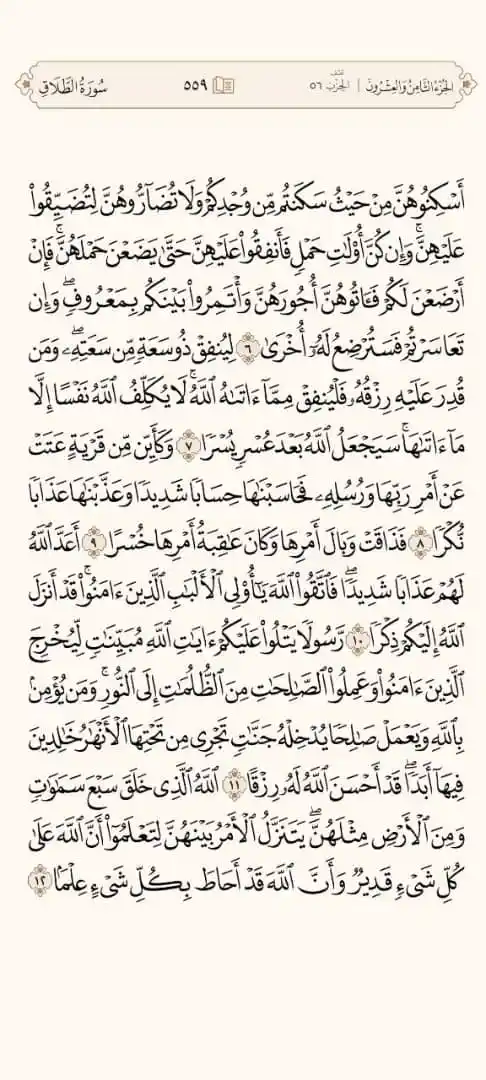 الجزء الثامن والعشرون | نصف الحزب ٥٦ ٥٥٩ سورة الطلاق
أَسْكِنُوهُنَّ مِنْ حَيْثُ سَكَنتُم مِّن وُجْدِكُمْ وَلَا تُضَآرُّوهُنَّ لِتُضَيِّقُوا۟
عَلَيْهِنَّ ۚ وَإِن كُنَّ أُو۟لَـٰتِ حَمْلٍ فَأَنفِقُوا۟ عَلَيْهِنَّ حَتَّىٰ يَضَعْنَ حَمْلَهُنَّ ۚ فَإِنْ
أَرْضَعْنَ لَكُمْ فَـَٔاتُوهُنَّ أُجُورَهُنَّ وَأْتَمِرُوا۟ بَيْنَكُم بِمَعْرُوفٍ ۖ وَإِن
تَعَاسَرْتُمْ فَسَتُرْضِعُ لَهُۥٓ أُخْرَىٰ ٦ لِيُنفِقْ ذُو سَعَةٍ مِّن سَعَتِهِۦ ۖ وَمَن
قُدِرَ عَلَيْهِ رِزْقُهُۥ فَلْيُنفِقْ مِمَّآ ءَاتَىٰهُ ٱللَّهُ ۚ لَا يُكَلِّفُ ٱللَّهُ نَفْسًا إِلَّا
مَآ ءَاتَىٰهَا ۚ سَيَجْعَلُ ٱللَّهُ بَعْدَ عُسْرٍ يُسْرًا ٧ وَكَأَيِّن مِّن قَرْيَةٍ عَتَتْ
عَنْ أَمْرِ رَبِّهَا وَرُسُلِهِۦ فَحَاسَبْنَـٰهَا حِسَابًا شَدِيدًا وَعَذَّبْنَـٰهَا عَذَابًا
نُّكْرًا ٨ فَذَاقَتْ وَبَالَ أَمْرِهَا وَكَانَ عَـٰقِبَةُ أَمْرِهَا خُسْرًا ٩ أَعَدَّ ٱللَّهُ
لَهُمْ عَذَابًا شَدِيدًا ۖ فَٱتَّقُوا۟ ٱللَّهَ يَـٰٓأُو۟لِى ٱلْأَلْبَـٰبِ ٱلَّذِينَ ءَامَنُوا۟ ۚ قَدْ أَنزَلَ
ٱللَّهُ إِلَيْكُمْ ذِكْرًا ١٠ رَّسُولًا يَتْلُوا۟ عَلَيْكُمْ ءَايَـٰتِ ٱللَّهِ مُبَيِّنَـٰتٍ لِّيُخْرِجَ
ٱلَّذِينَ ءَامَنُوا۟ وَعَمِلُوا۟ ٱلصَّـٰلِحَـٰتِ مِنَ ٱلظُّلُمَـٰتِ إِلَى ٱلنُّورِ ۚ وَمَن يُؤْمِنۢ
بِٱللَّهِ وَيَعْمَلْ صَـٰلِحًا يُدْخِلْهُ جَنَّـٰتٍ تَجْرِى مِن تَحْتِهَا ٱلْأَنْهَـٰرُ خَـٰلِدِينَ
فِيهَآ أَبَدًا ۖ قَدْ أَحْسَنَ ٱللَّهُ لَهُۥ رِزْقًا ١١ ٱللَّهُ ٱلَّذِى خَلَقَ سَبْعَ سَمَـٰوَٰتٍ
وَمِنَ ٱلْأَرْضِ مِثْلَهُنَّ ۖ يَتَنَزَّلُ ٱلْأَمْرُ بَيْنَهُنَّ لِتَعْلَمُوٓا۟ أَنَّ ٱللَّهَ عَلَىٰ
كُلِّ شَىْءٍ قَدِيرٌ وَأَنَّ ٱللَّهَ قَدْ أَحَاطَ بِكُلِّ شَىْءٍ عِلْمًۢا ١٢